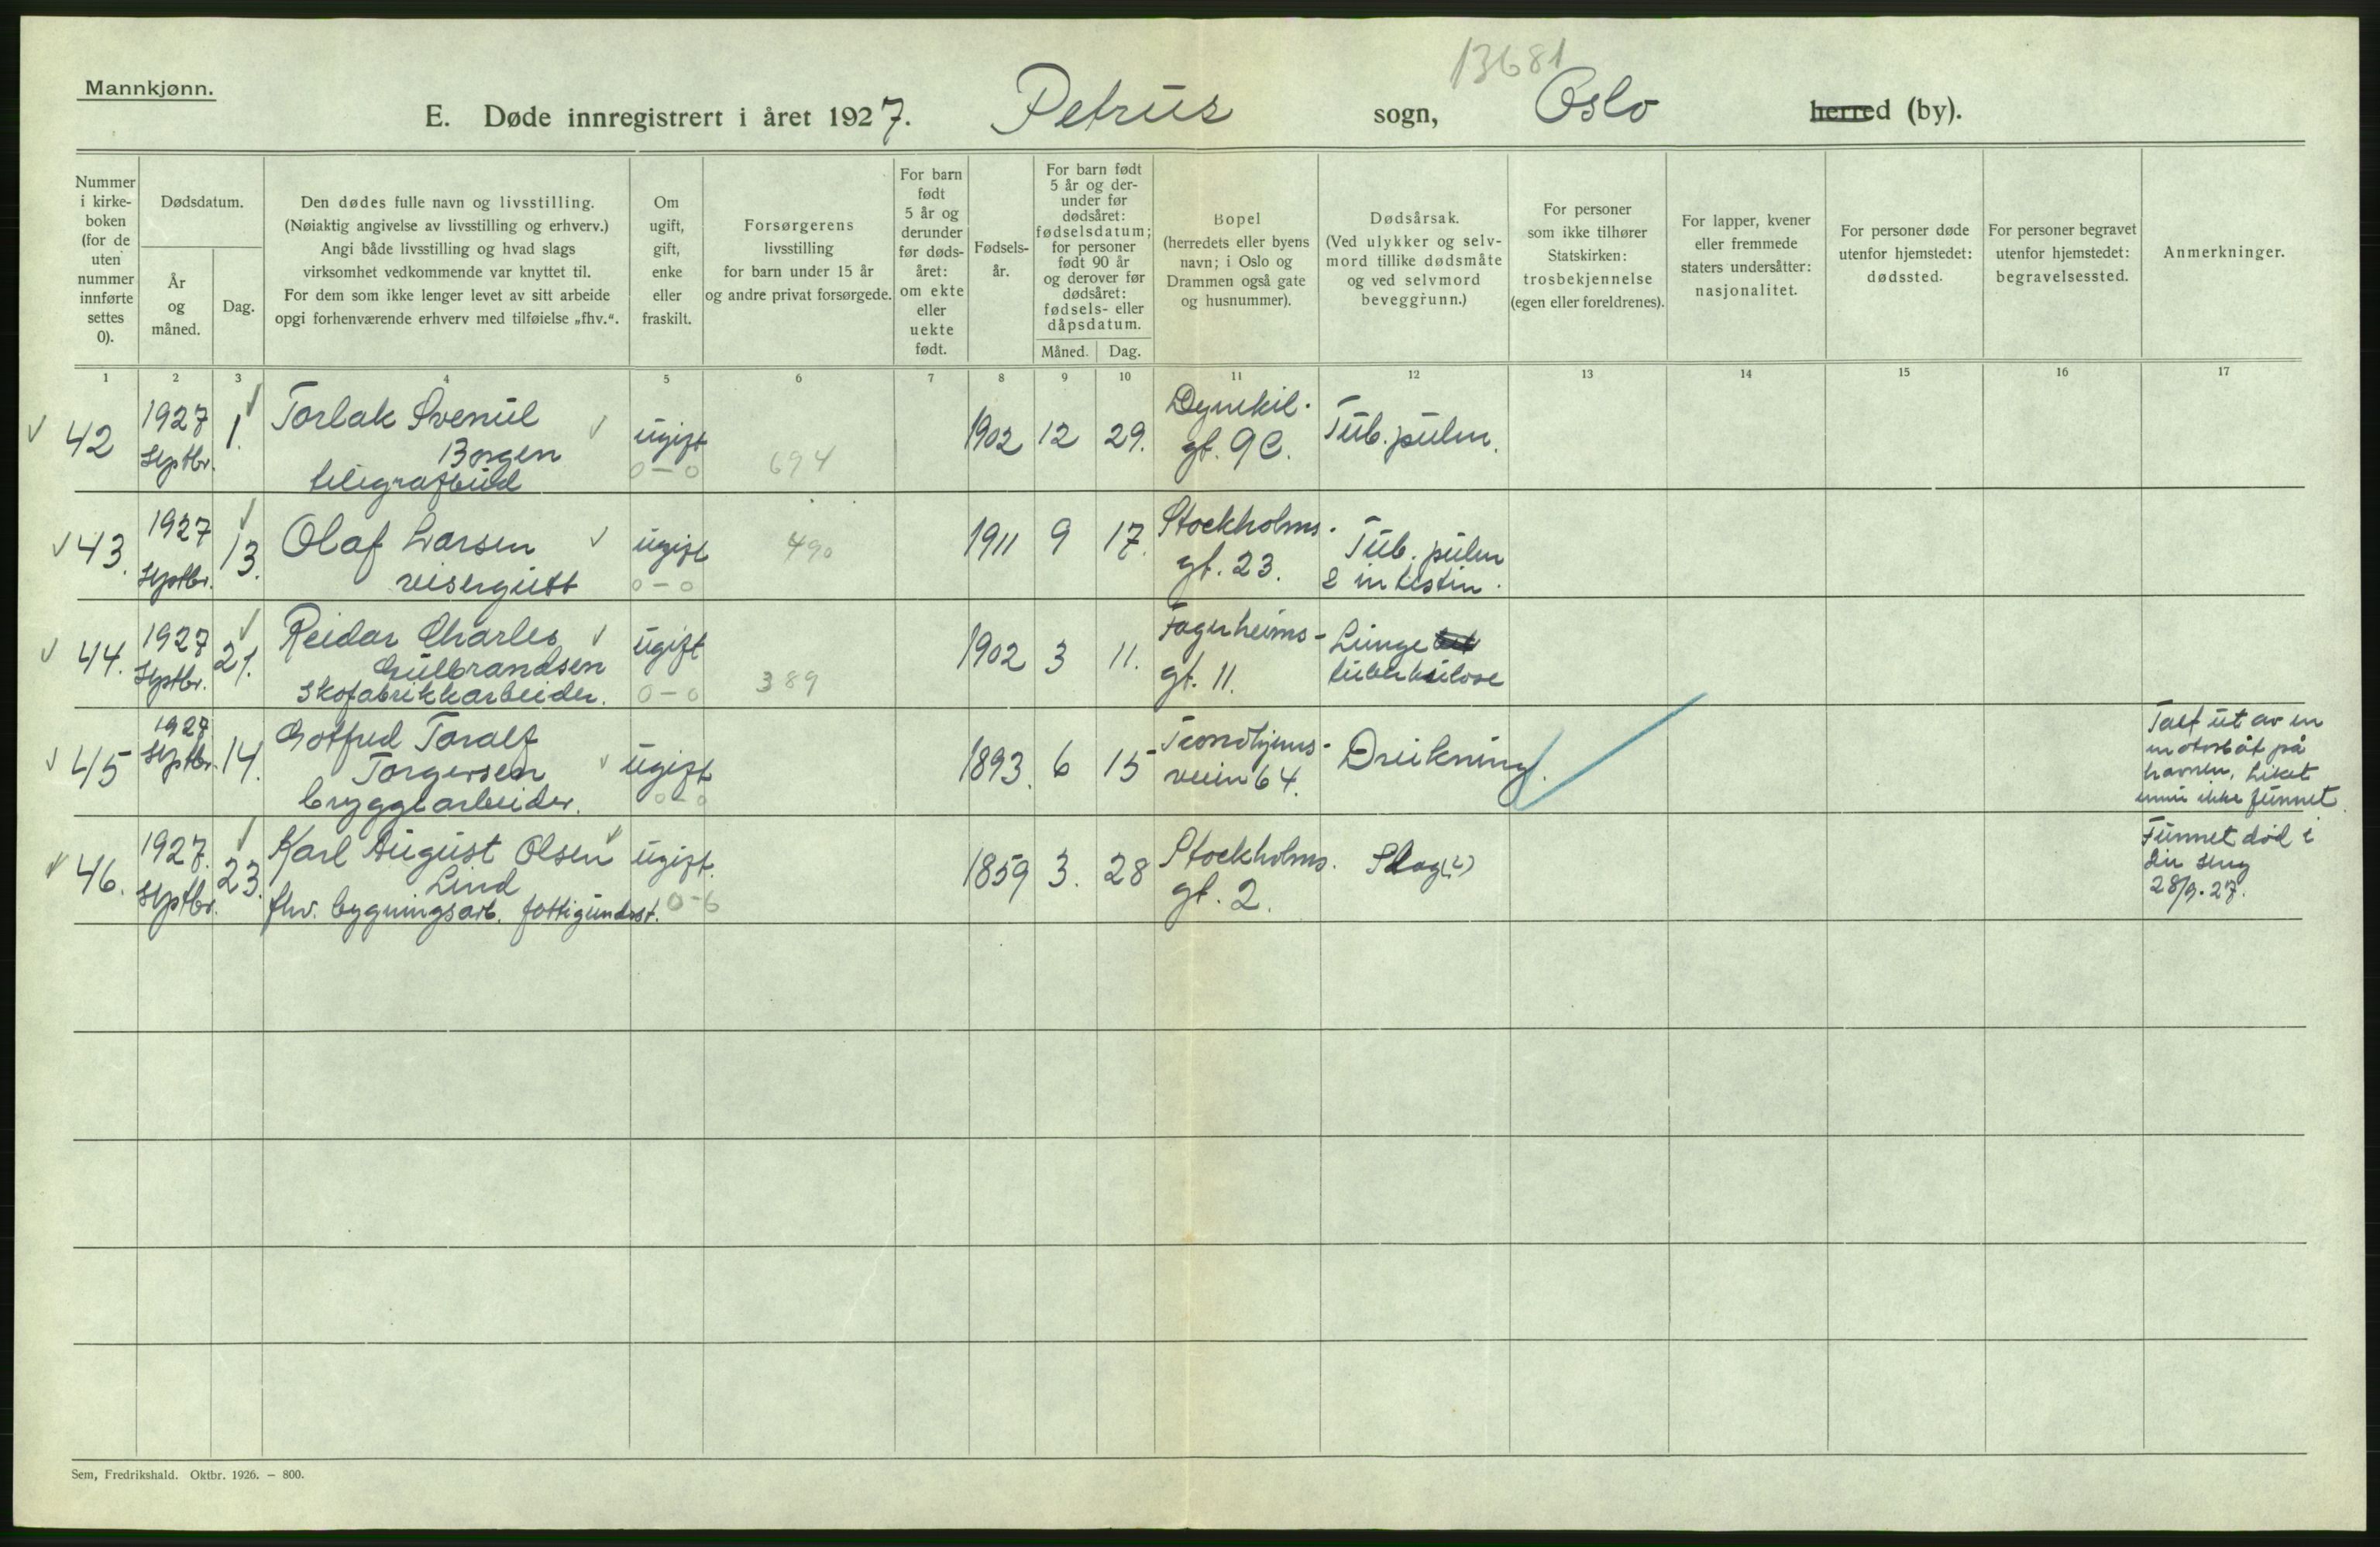 13681
Mannkjønn.
E. Døde innregistrert i året 1927. Petrus sogn, Oslo herred (by).
Nummer
i kirke-
boken
(for de
uten
nummer
innførte
settes
0).
Dødsdatum.
År
og
måned.
Dag.
Den dødes fulle navn og livsstilling.
(Nøiaktig angivelse av livsstilling og erhverv.)
Angi både livsstilling og hvad slags
virksomhet vedkommende var knyttet til.
For dem som ikke lenger levet av sitt arbeide
opgi forhenværende erhverv med tilføielse „fhv.“.
Om
ugift,
gift,
enke
eller
fraskilt.
Forsørgerens
livsstilling
for barn under 15 år
og andre privat forsørgede.
For barn
født
5 år og
derunder
før døds-
året:
om ekte
eller
uekte
født.
Fødsels-
år.
For barn født
5 år og der-
under før
dødsåret:
fødselsdatum;
for personer
født 90 år
og derover før
dødsåret:
fødsels- eller
dåpsdatum.
Måned. Dag.
Bopel
(herredets eller byens
navn; i Oslo og
Drammen også gate
og husnummer).
Dødsårsak.
(Ved ulykker og selv-
mord tillike dødsmåte
og ved selvmord
beveggrunn.)
For personer
som ikke tilhører
Statskirken:
trosbekjennelse
(egen eller foreldrenes).
For lapper, kvener
eller fremmede
staters undersåtter:
nasjonalitet.
For personer døde
utenfor hjemstedet:
dødssted.
For personer begravet
utenfor hjemstedet:
begravelsessted.
Anmerkninger.
1 2 3 4 5 6 7 8 9 10 11 12 13 14 15 16 17
42
1927
Septbr.
1.
Torlak Svenul
Borgen
telegrafbud
ugift
0-0
694
1902 12 29.
Dynekil-
gt. 9C.
Tub. pulm.
43.
1927
Septbr.
13.
Olaf Larsen
visergutt
ugift
0-0
490
1911 9 17.
Stockholms-
gt. 23.
Tub. pulm
& intestin.
44.
1927
Septbr.
21.
Reidar Charles
Gulbrandsen
skofabrikkarbeider.
ugift
0-0
389
1902 3 11.
Fagerheims-
gt. 11.
Lunge
tuberkulose
45
1927
Septbr.
14.
Gotfred Toralf
Torgersen
bryggearbeider.
ugift
0-0
1893. 6 15
Trondhjems-
veien 64.
Drukning.
Falt ut av en
motorbåt på
havnen. Liket
ennu ikke funnet.
46.
1927.
Septbr.
23.
Karl August Olsen
Lind
fhv. bygningsarb. fattigunderst.
ugift.
0-6
1859 3. 28
Stockholms.
gt. 2.
Slag(?)
Funnet død i
sin seng
28/9.27.
Sem, Fredrikshald. Oktbr. 1926. — 800.